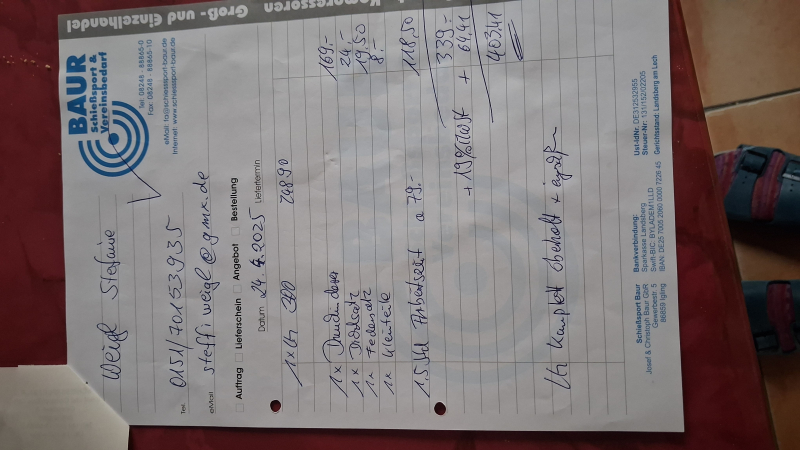 Kompressoren
Groß- und Einzelhandel
BAUR
Schießsport &
Vereinsbedarf
Tel. 08248 - 88865-0
Fax: 08248 - 88865-10
eMail: ta@schiesssport-baur.de
Internet: www.schiesssport-baur.de
Weigl Stefanie
Tel. 0151/70153935
eMail steffi.weigl@gmx.de
Auftrag Lieferschein Angebot Bestellung
Datum 24.4.2025 Liefertermin
1x LG 300 24890
1x 169.-
1x Dichtsatz 24.-
1x Federsatz 19,50
1x Kleinteile 8.-
1,5 Std Arbeitszeit a 79.- 118,50
339.-
+ 19% MwSt + 64,41
403,41
LG komplett überholt +
Schießsport Baur
Josef & Christoph Baur GbR
Gewerbestr. 5
86859 Igling
Bankverbindung:
Sparkasse Landsberg
Swift-BIC: BYLADEM1LLD
IBAN: DE25 7005 2060 0000 7226 45
Ust-IdNr. DE312532955
Steuer-Nr. 131/152/02205
Gerichtsstand: Landsberg am Lech